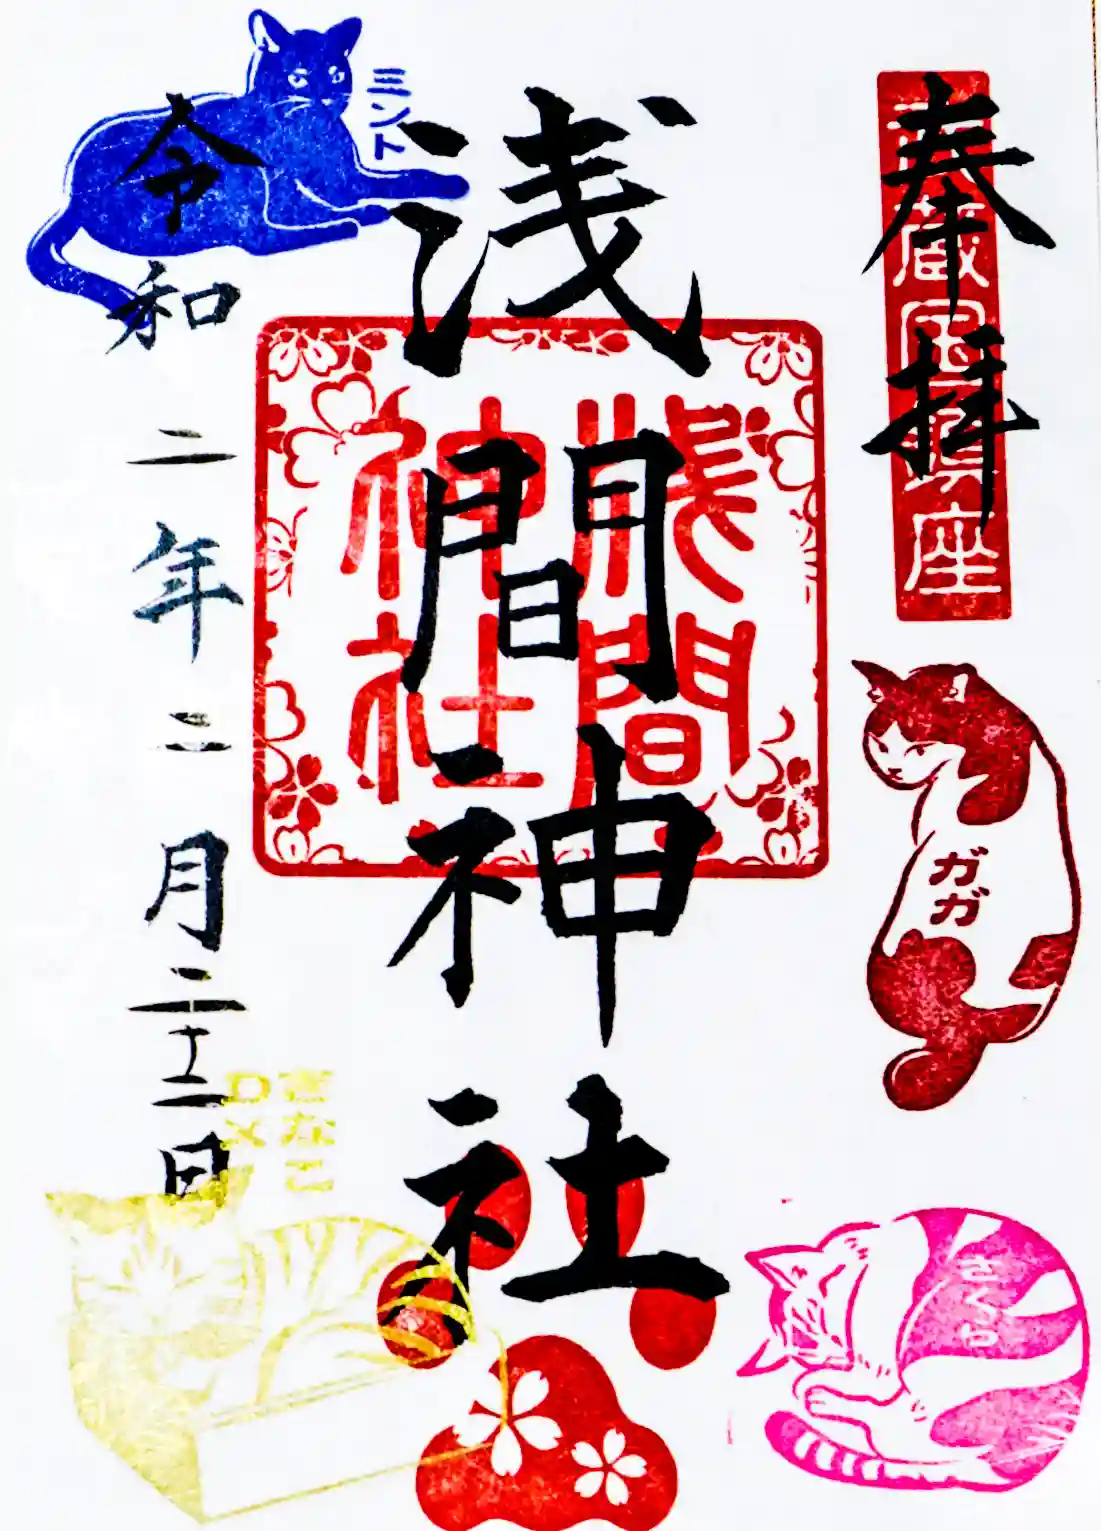 奉拝
武蔵国鎮座
ガガ
さくら
浅間神社
浅間
神社
ミント
きなこ
令和二年二月二十二日